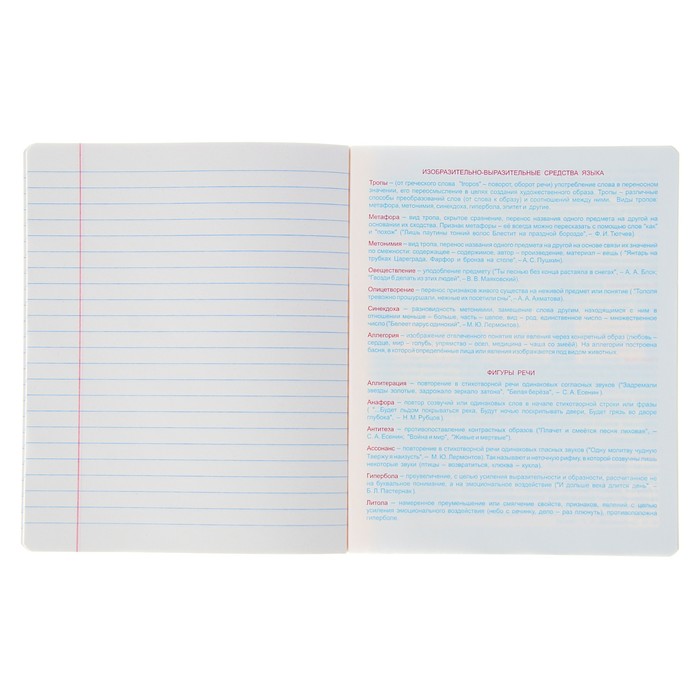 ИЗОБРАЗИТЕЛЬНО-ВЫРАЗИТЕЛЬНЫЕ СРЕДСТВА ЯЗЫКА
Тропы – (от греческого слова "tropos" – поворот, оборот речи) употребление слова в переносном
значении, его переосмысление в целях создания художественного образа. Тропы – различные
способы преобразований слов (от слова к образу) и соотношений между ними. Виды тропов:
метафора, метонимия, синекдоха, гипербола, эпитет и другие.
Метафора – вид тропа, скрытое сравнение, перенос названия одного предмета на другой на
основании их сходства. Признак метафоры – её всегда можно пересказать с помощью слов "как"
и "похож" ("Лишь паутины тонкий волос Блестит на праздной борозде". – Ф. И. Тютчев)
Метонимия – вид тропа, перенос названия одного предмета на другой на основе связи их значений
по смежности: содержащее – содержимое; автор – произведение; материал – вещь ("Янтарь на
трубках Цареграда, Фарфор и бронза на столе", – А. С. Пушкин).
Овеществление – уподобление предмету ("Ты песнью без конца растаяла в снегах", – А. А. Блок;
"Гвозди б делать из этих людей" – В. В. Маяковский).
Олицетворение – перенос признаков живого существа на неживой предмет или понятие ( "Тополя
тревожно прошуршали, нежные их посетили сны", – А. А. Ахматова).
Синекдоха – разновидность метонимии, замещение слова другим, находящимся с ним в
отношениях меньше – больше; часть – целое; вид – род; единственное число – множественное
число ("Белеет парус одинокий", – М. Ю. Лермонтов).
Аллегория – изображение отвлечённого понятия или явления через конкретный образ (любовь –
сердце, мир – голубь, упрямство – осел, медицина – чаша со змеёй). На аллегории построена
басня, в которой определенные лица или явления изображаются под видом животных.
ФИГУРЫ РЕЧИ
Аллитерация – повторение в стихотворной речи одинаковых согласных звуков ("Задремали
звезды золотые, задрожало зеркало затона", "Белая берёза", – С. А. Есенин ).
Анафора – повтор созвучий или одинаковых слов в начале стихотворной строки или фразы
( "...Будет льдом покрываться река, Будут ночью поскрипывать двери, Будет грязь во дворе
глубока", – Н. М. Рубцов ).
Антитеза – противопоставление контрастных образов ("Плачет и смеётся песня лиховая", –
С. А. Есенин; "Война и мир", "Живые и мертвые").
Ассонанс – повторение в стихотворной речи одинаковых гласных звуков ("Одну молитву чудную
Твержу я наизусть", – М. Ю. Лермонтов). Так называют и неточную рифму, в которой созвучны лишь
некоторые звуки (птицы – возвратиться, клюква – кукла).
Гипербола – преувеличение, с целью усиления выразительности и образности, рассчитанное не
на буквальное понимание, а на эмоциональное воздействие ("И дольше века длится день", –
Б. Л. Пастернак).
Литота – намеренное преуменьшение или смягчение свойств, признаков, явлений с целью
усиления эмоционального воздействия (небо с овчинку, дело – раз плюнуть), противоположна
гиперболе.